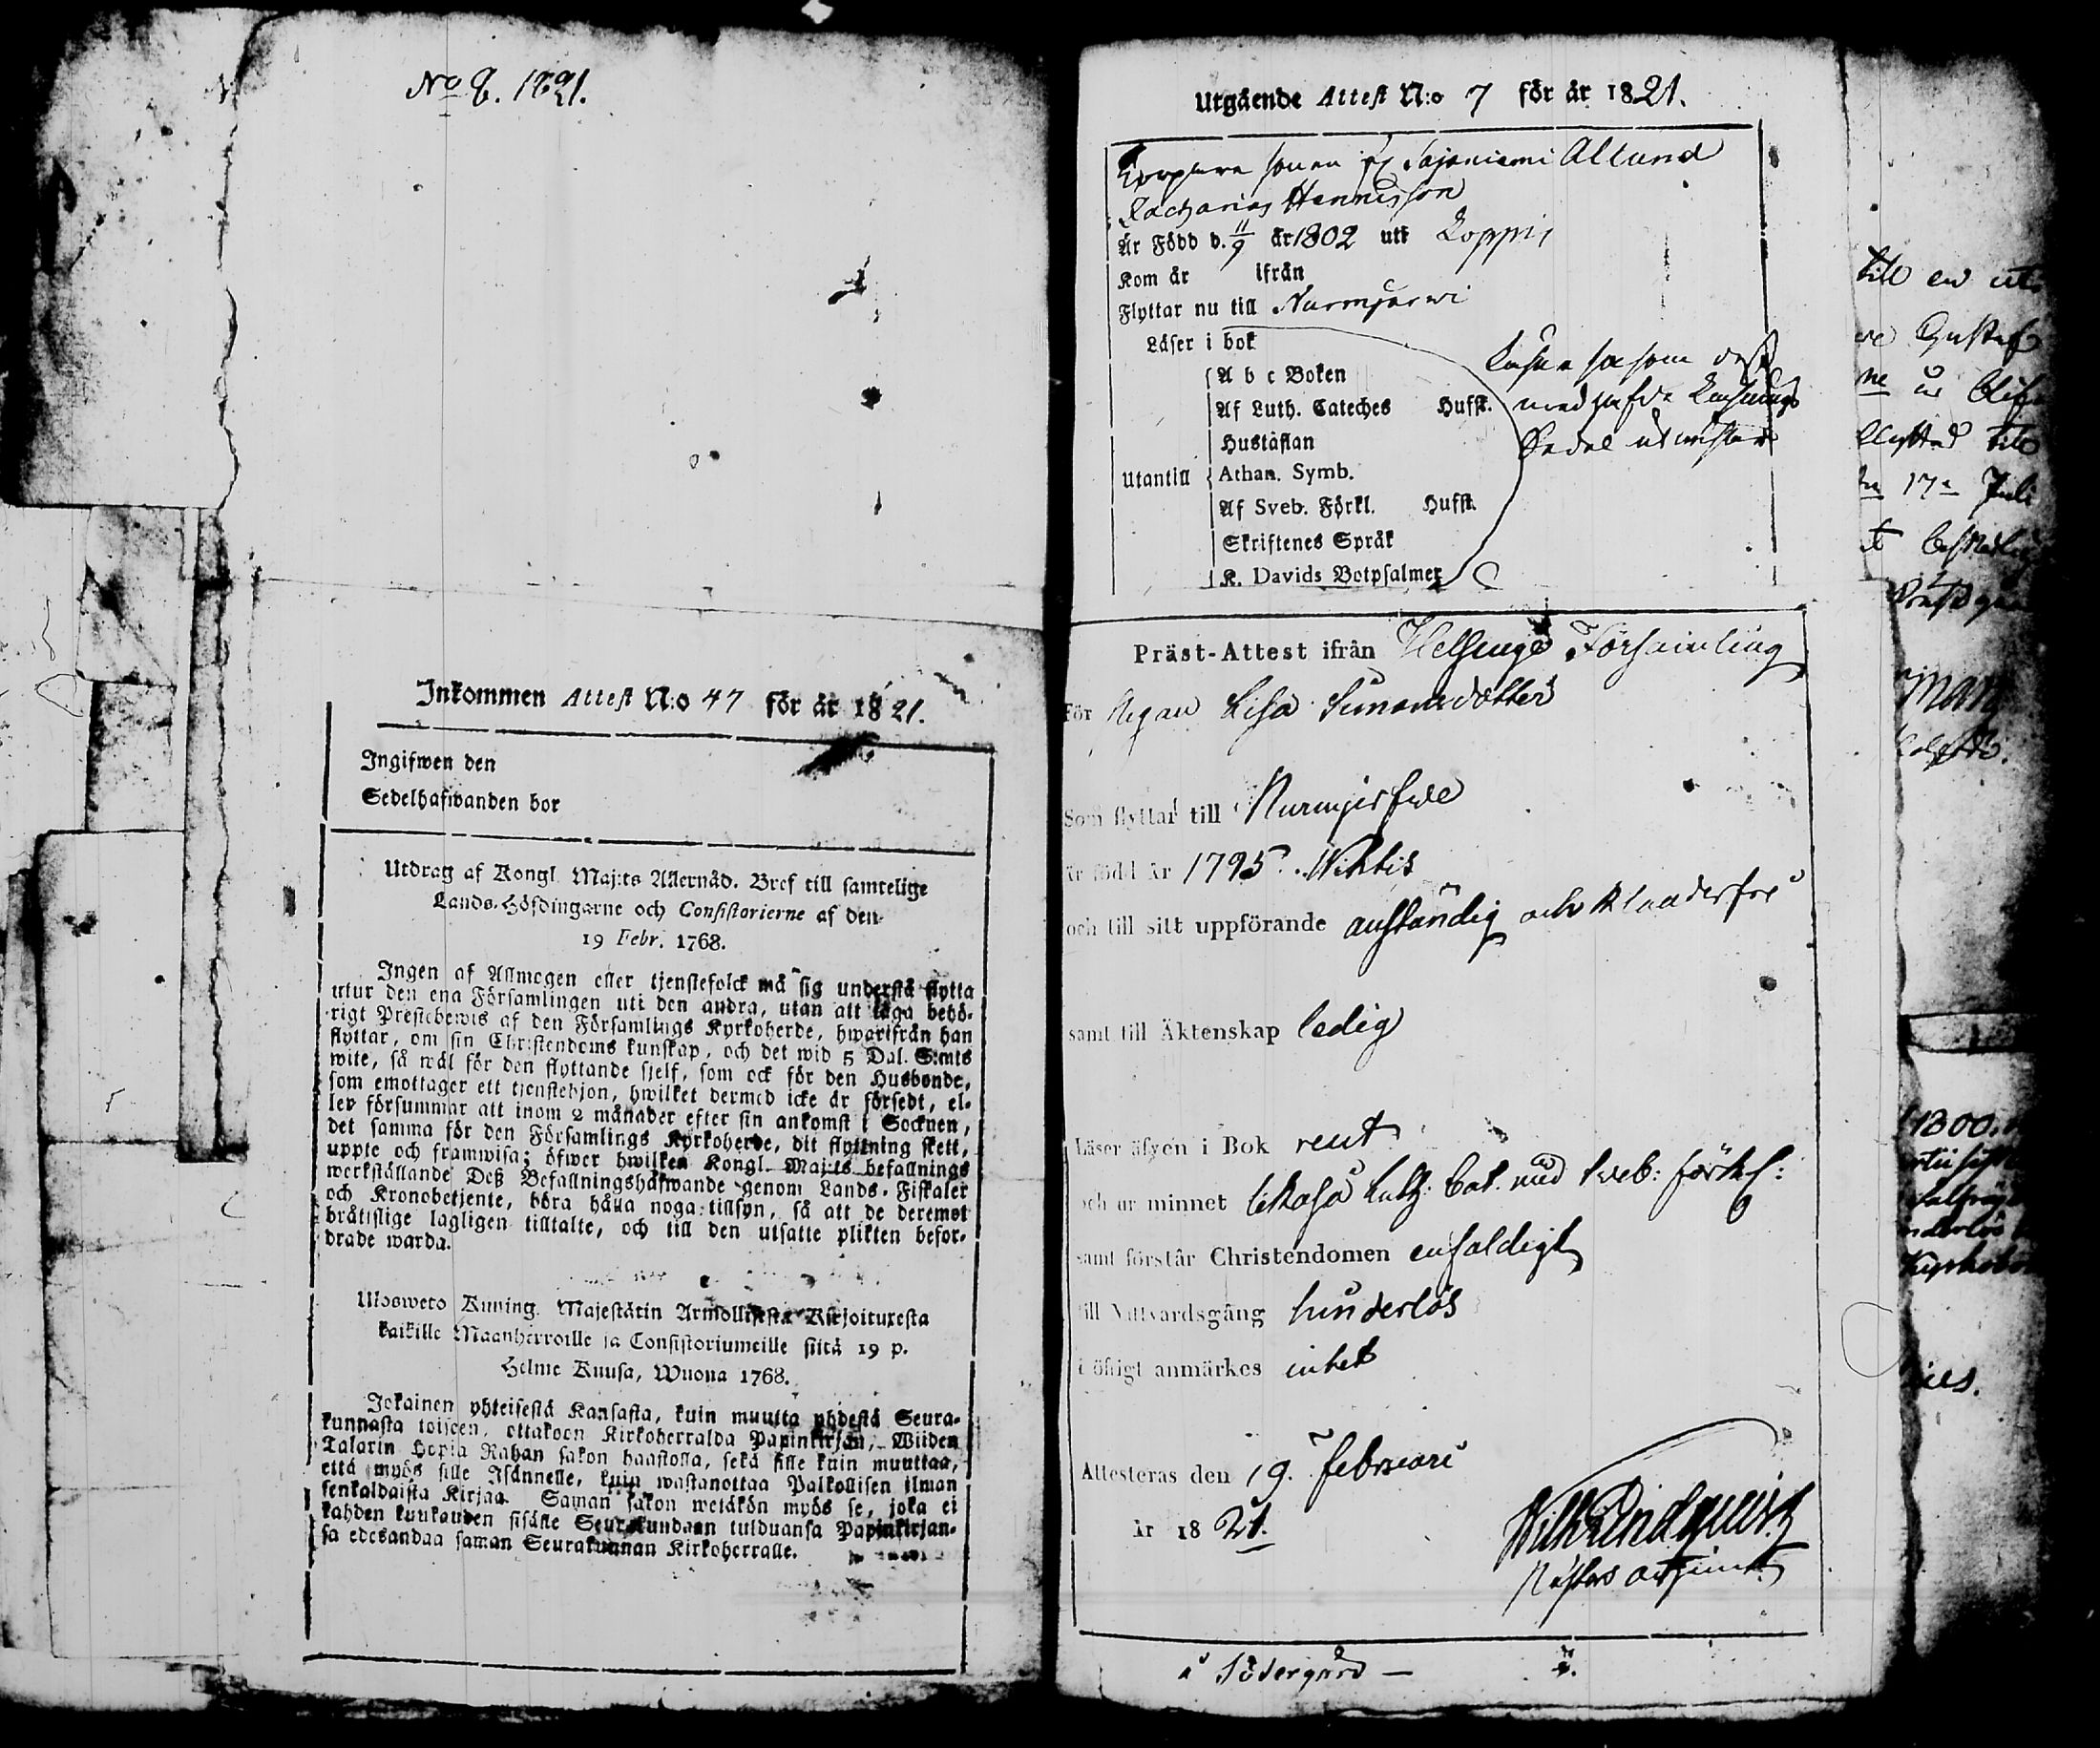 No 8. 1821.
Inkommen Attest N:o 47 för år 1821.
Ingifwen den
Sedelhafwanden bor
Utdrag af Kongl. Maj:ts Allernåd. Bref till samtelige
Lands-Höfdingarne och Consistorierne af den
19 Febr. 1768.
Ingen af Allmogen eller tjenstefolck må sig understå flytta
utur den ena Församlingen uti den andra, utan att taga behö-
rigt Prestebewis af den Församlings Kyrkoherde, hwarifrån han
flyttar, om sin Christendoms kunskap, och det wid 5 Dal. S:mts
wite, så wäl för den flyttande sjelf, som ock för den Husbonde,
som emottager ett tjenstehjon, hwilket dermed icke är försedt, el-
ler försummar att inom 2 månader efter sin ankomst i Socknen,
det samma för den Församlings Kyrkoherde, dit flyttning skett,
uppte och framwisa; öfwer hwilken Kongl. Maj:ts befallnings
werkställande Deß Befallningshafwande genom Lands-Fiskaler
och Kronobetjente, böra hålla noga tillsyn, så att de deremot
bråttslige lagligen tilltalte, och till den utsatte plikten befor-
drade warda.
Ulosweto Kuning. Majestätin Armollisesta Kirjoituxesta
kaikille Maanherroille ja Consistoriumeille siitä 19 p.
Helme Kuusa, Wuona 1768.
Jokainen yhteisestä Kansasta, kuin muutta yhdestä Seura-
kunnasta toiseen, ottakoon Kirkoherralda Papinkirjan, Wiiden
Talarin Hopia Rahan sakon haastolla, sekä sille kuin muuttaa,
että myös sille Isännelle, kuin wastanottaa Palkollisen ilman
senkaldaista Kirjaa. Saman sakon wetäkön myös se, joka ei
kahden kuukauden sisälle Seurakundaan tulduansa Papinkirjan-
sa edesandaa saman Seurakunnan Kirkoherralle.
Utgående Attest N:o 7 för år 1821.
sonen Allund
Zacharias Hennisson
Är Född d. 11/9 år 1802 uti Loppis
Kom år ifrån
Flyttar nu till Nurmjärwi
Läser i bok
A b c Boken
Af Luth. Cateches Hufst.
Hustaflan
Utantill Athan. Symb.
Af Sveb. Förkl. Hufst.
Skriftenes Språk
K. Davids Botpsalmer
Präst-Attest ifrån Helsinge Församling
För Pigan Lisa Simonsdotter
Som flyttar till Nurmijerfwe
är född år 1795. Wihtis
och till sitt uppförande anständig och klanderfri
samt till Äktenskap ledig
Läser äfven i Bok rent
och ur minnet likaså Luth: Cat. med Sveb: förkl:
samt förstår Christendomen enfaldigt
till Nattvardsgång hinderlös
i öfrigt anmärkes intet
Attesteras den 19. februari
År 1821.
å Södergård —
till en
Gustaf
till
17de Juli
1800.